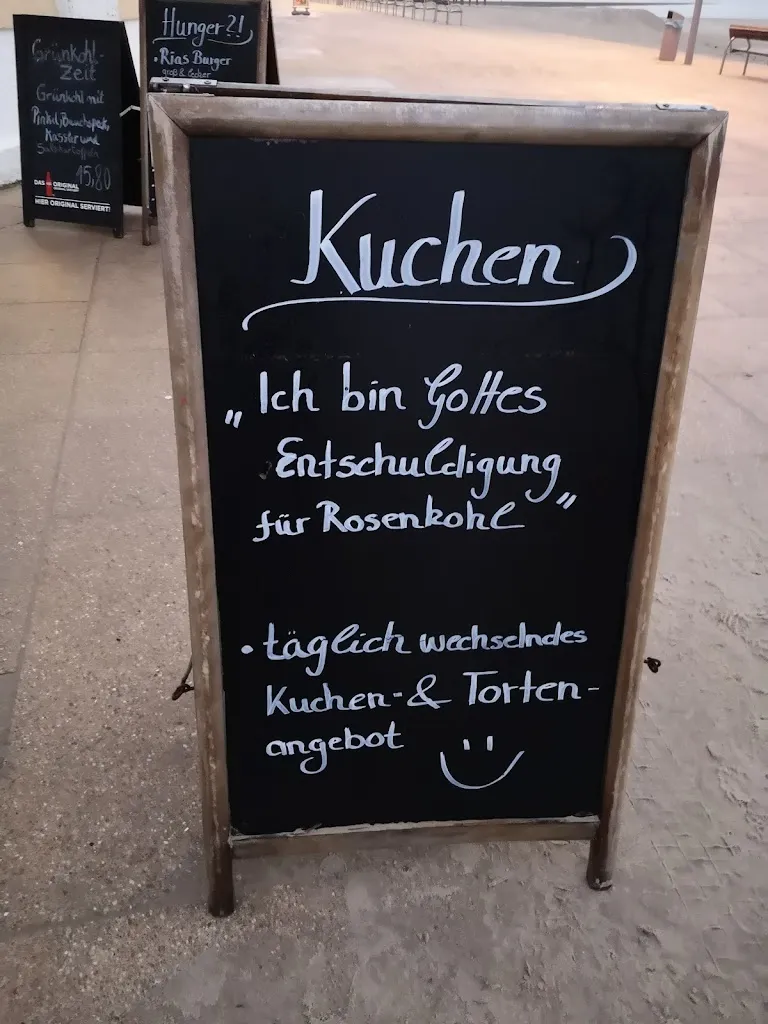 Kuchen
„Ich bin Gottes
Entschuldigung
für Rosenkohl"
• täglich wechselndes
Kuchen- & Torten-
angebot
Grünkohl-
Zeit
Grünkohl mit
Pinkel, Bauchspeck,
Kassler und
Salzkartoffeln
15,80
DAS ORIGINAL
HIER ORIGINAL SERVIERT!
Hunger?!
• Rias Burger
groß & lecker